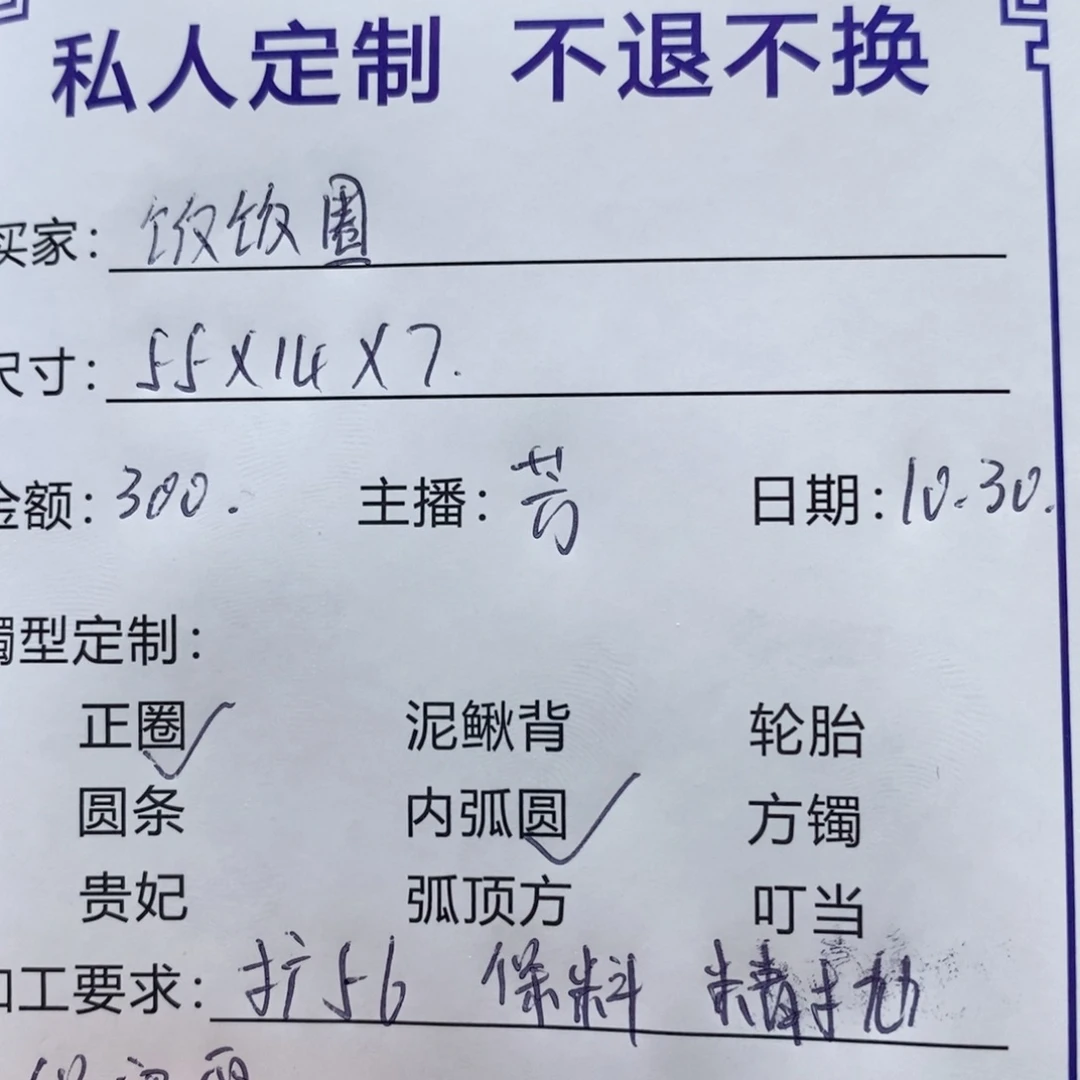 私人定制 不退不换
买家: 饭饭圈
尺寸: 55X14X7.
金额: 300. 主播: 芳 日期: 10.30.
镯型定制:
正圈 泥鳅背 轮胎
圆条 内弧圆 方镯
贵妃 弧顶方 叮当
加工要求: 扩56 保料 精抛